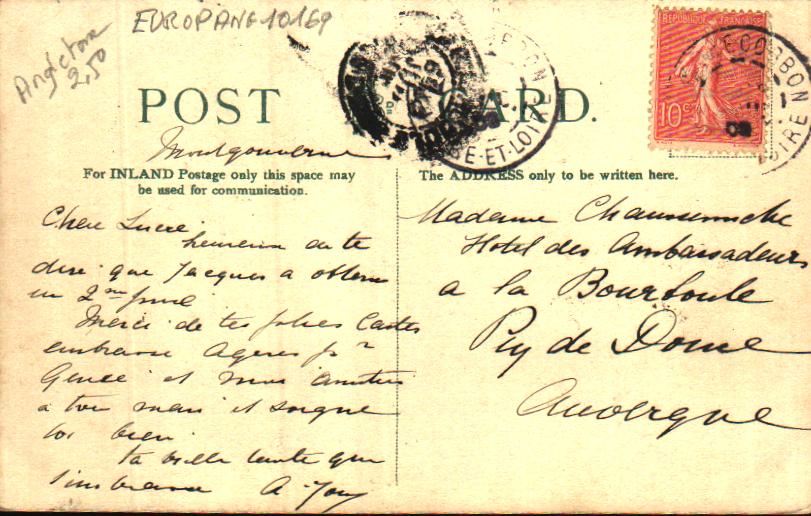 EUROPANG 10169
Angleterre
2,50
POST CARD.
REPUBLIQUE FRANÇAISE
10c
ROCHECORBON
LOIRE
ET-LOIRE
Montgouverne
For INLAND Postage only this space may
be used for communication.
The ADDRESS only to be written here.
Chere Lucie
heureux de te
dire que Jacques a obtenu
un 2me prix
Merci de tes jolies Cartes
embrasse Agnes pr
et mes amitiés
a ton mari et soigne
toi bien
ta vieille tante que
t'embrasse
Madame
Hotel des Ambassadeurs
a la Bourboule
Puy de Dome
Auvergne